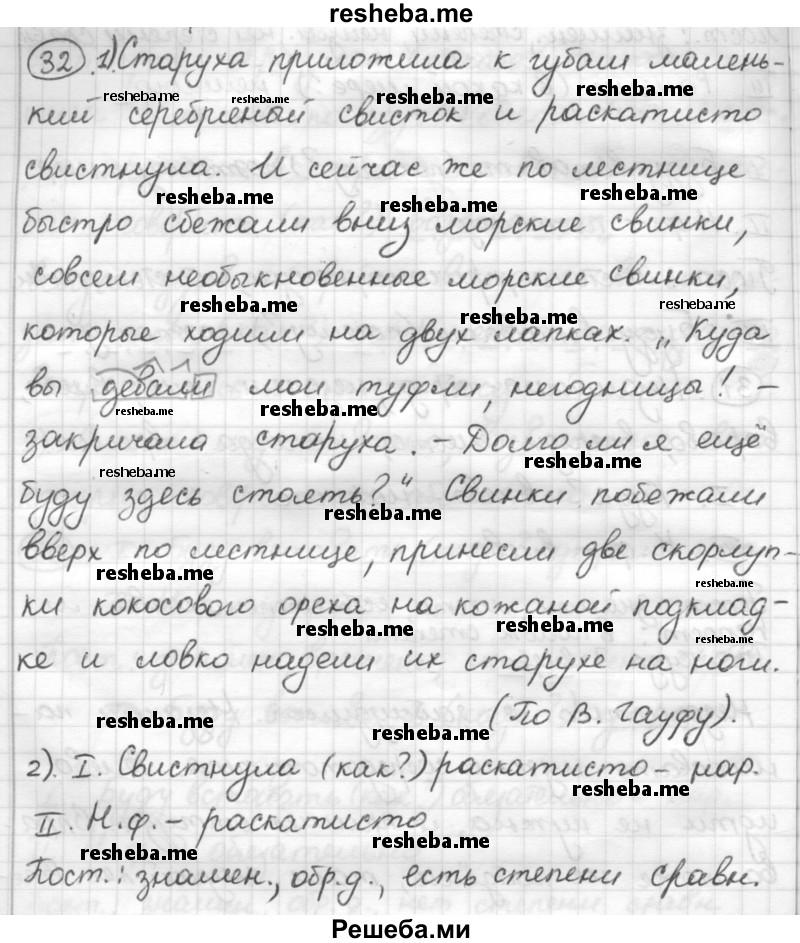 resheba.me
32 1) Старуха приложила к губам малень-
resheba.me resheba.me resheba.me resheba.me
кий серебряный свисток и раскатисто
свистнула. И сейчас же по лестнице
resheba.me resheba.me resheba.me
быстро сбежали вниз морские свинки,
совсем необыкновенные морские свинки,
resheba.me resheba.me resheba.me
которые ходили на двух лапках. „Куда
вы девали мои туфли, негодницы! –
resheba.me resheba.me resheba.me
закричала старуха. – Долго ли я ещё
resheba.me resheba.me
буду здесь стоять?" Свинки побежали
resheba.me
вверх по лестнице, принесли две скорлуп-
resheba.me resheba.me
ки кокосового ореха на кожаной подклад-
resheba.me resheba.me resheba.me
ке и ловко надели их старухе на ноги.
(По В. Гауфу).
resheba.me resheba.me
2). I. Свистнула (как?) раскатисто – нар.
resheba.me
II. Н.ф. – раскатисто
resheba.me resheba.me
Пост.: знамен., обр.д., есть степени сравн.
Решеба.ми